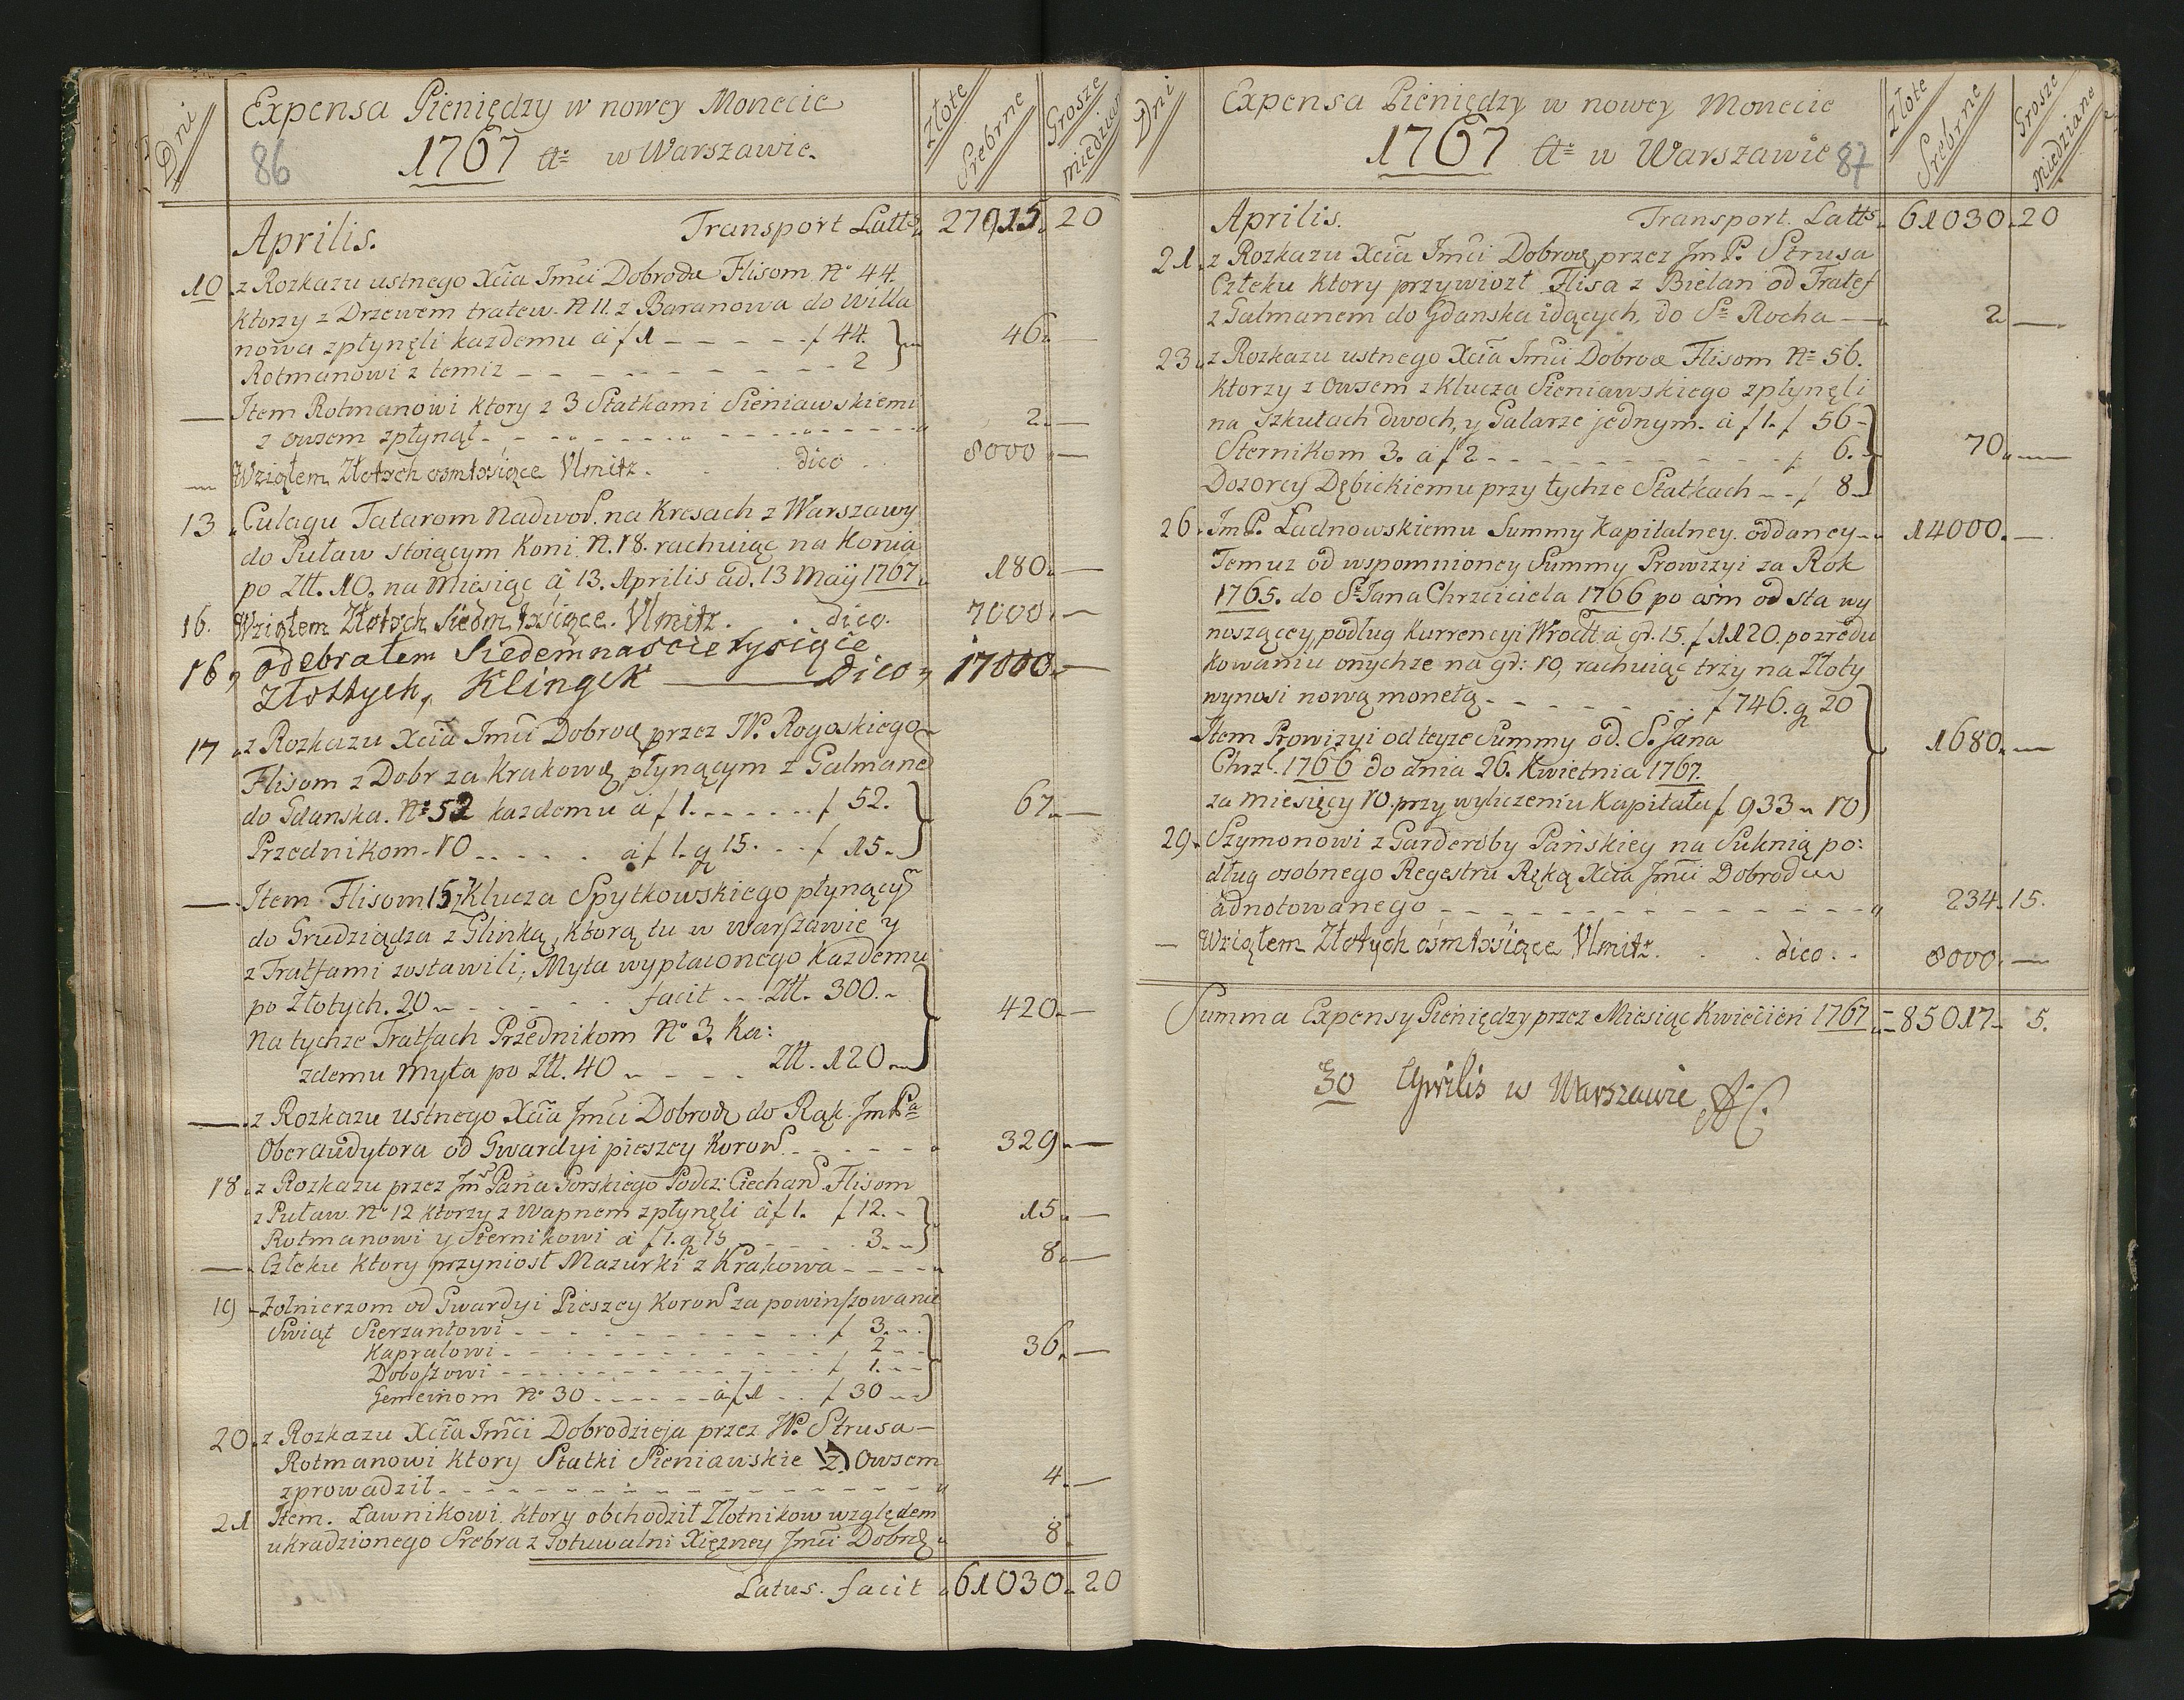 Dni
Expensa Pieniędzy w nowey Monecie
86 1767 Ao w Warszawie.
Złote Srebrne
Grosze miedziane
Aprilis. Transport Latts 27915. 20
10 z Rozkazu ustnego Xcia Jmci Dobrodu Flisom No 44.
ktorzy z Drzewem tratew. N 11. z Baranowa do Willa
nowa zpłynęli kazdemu a f 1 f 44.
Rotmanowi z temiz 2 46
Item Rotmanowi ktory z 3 Statkami Sieniawskiemi
z owsem zpłynął 2
Wziąłem Złotych osmtysięce Ulmitz. dico 8000
13 Culagu Tatarom Nadwor. na Kresach z Warszawy
do Puław stoiącym Koni N. 18. rachuiąc na Konia
po Ztt. 10. na miesiąc a 13. Aprilis ad. 13 Maÿ 1767 180
16. Wziąłem Złotych Siedmtysięce. Ulmitz. dico. 7000
16 odebrałem Siedemnascie tysięcie
złotłych, Klingek dico 17000
17 z Rozkazu Xcia Jmci Dobrod przez W. Rogoskiego
Flisom z Dobr za Krakowa płynącym z Galmane
do Gdanska. No 52 kazdemu a f 1. f 52.
Przednikom 10 a f 1. g 15. f 15 67
Item Flisom 15 z Klucza Spytkowskiego płynący
do Grudziądza z Glinką, ktorą tu w warszawie y
z Tratfami zostawili; Myta wypłaconego kazdemu
po Złotych. 20 facit Ztt. 300.
Na tychze Tratfach Przednikom No 3. Ka:
zdemu Myta po Ztt. 40 Ztt. 120 420
z Rozkazu ustnego Xcia Jmci Dobrod do Rąk Jm Pa
Oberaudytora od Gwardyi pieszey Koron 329
18 z Rozkazu przez Jm Pana Gorskiego Podcz: Ciechan Flisom
z Puław No 12 ktorzy z Wapnem zpłynęli a f 1. f 12.
Rotmanowi y Sternikowi a f 1. g 15 3. 15
Człeku ktory przyniosł Mazurki z Krakowa 8
19 Zołnierzom od Gwardyi Pieszey Koron za powinszowanie
Swiąt Sierzantowi f 3.
Kapralowi 2
Doboszowi f 1.
Gemeinom No 30 a f 1 f 30 36
20 z Rozkazu Xcia Jmci Dobrodzieja przez W. Strusa
Rotmanowi ktory Statki Sieniawskie z Owsem
zprowadził 4
21 Item. Ławnikowi. ktory obchodził Złotnikow względem
ukradzionego Srebra z Gotuwalni Xięzney Jmci Dobrdz 8
Latus. facit 61030 20
Dni
Expensa Pieniędzy w nowey Monecie
1767 Ao w Warszawie 87
Złote Srebrne
Grosze Miedziane
Aprilis. Transport. Latts. 61030. 20
21. z Rozkazu Xcia Jmci Dobrod przez Jm P. Strusa
Człeku ktory przywiozł Flisa z Bielan od Tratef
z Galmanem do Gdanska idących, do S. Rocha 2
23 z Rozkazu ustnego Xcia Jmci Dobrod Flisom No 56.
ktorzy z owsem z Klucza Sieniawskiego zpłynęli
na Szkutach dwoch, y Galarze jednym. a f 1. f 56
Sternikom 3. a f 2 f 6.
Dozorcy Dębickiemu przy tychze Statkach f 8 70
26. Jm P. Ładnowskiemu Summy Kapitalney oddaney 14000.
Temuz od wspomnioney Summy Prowizyi za Rok
1765. do S. Jana Chrzciciela 1766 po osm od sta wy
noszącey, podług Kurrencyi Wrocł a gr. 15. f 1120. po zredu
kowaniu onychze na gr: 10, rachuiąc trzy na Złoty
wynosi nową monetą f 746. g 20
Item Prowizyi od teyze Summy od. S. Jana
Chrzc. 1766 do dnia 26. Kwietnia 1767.
za miesięcy 10. przy wyliczeniu Kapitału f 933 10 1680.
29. Szymonowi z Garderoby Pańskiey na Suknią po:
dług osobnego Regestru Ręką Xcia Jmci Dobrod
adnotowanego 234. 15.
Wziąłem Złotych osmtysięce Ulmitz. dico. 8000
Summa Expensy Pieniędzy przez Miesiąc Kwiecień 1767 85017 5.
30 Aprilis w Warszawie AC.